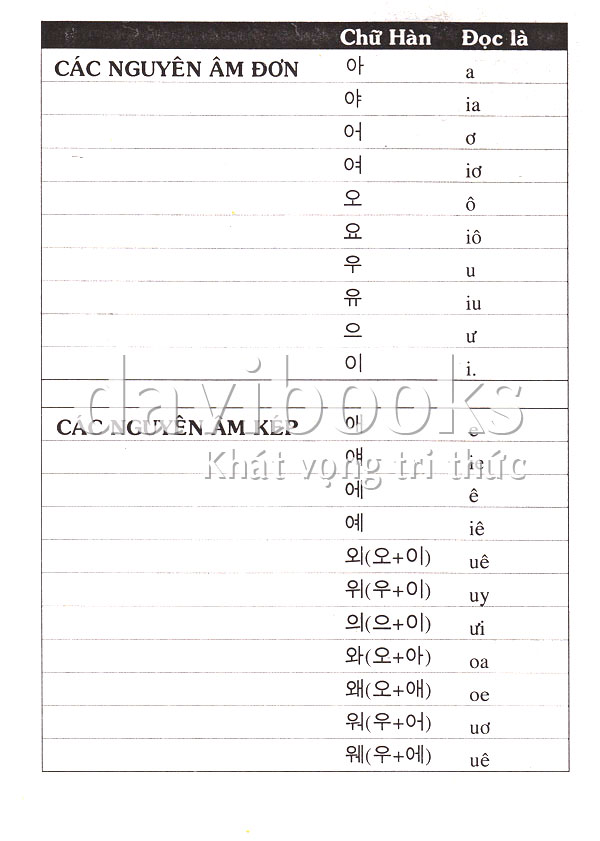 Chữ Hàn Đọc là
CÁC NGUYÊN ÂM ĐƠN 아 a
야 ia
어 ơ
여 iơ
오 ô
요 iô
우 u
유 iu
으 ư
이 i.
davibooks
CÁC NGUYÊN ÂM KÉP 애 e
얘 ie
Khát vọng tri thức
에 ê
예 iê
외(오+이) uê
위(우+이) uy
의(으+이) ưi
와(오+아) oa
왜(오+애) oe
워(우+어) uơ
웨(우+에) uê